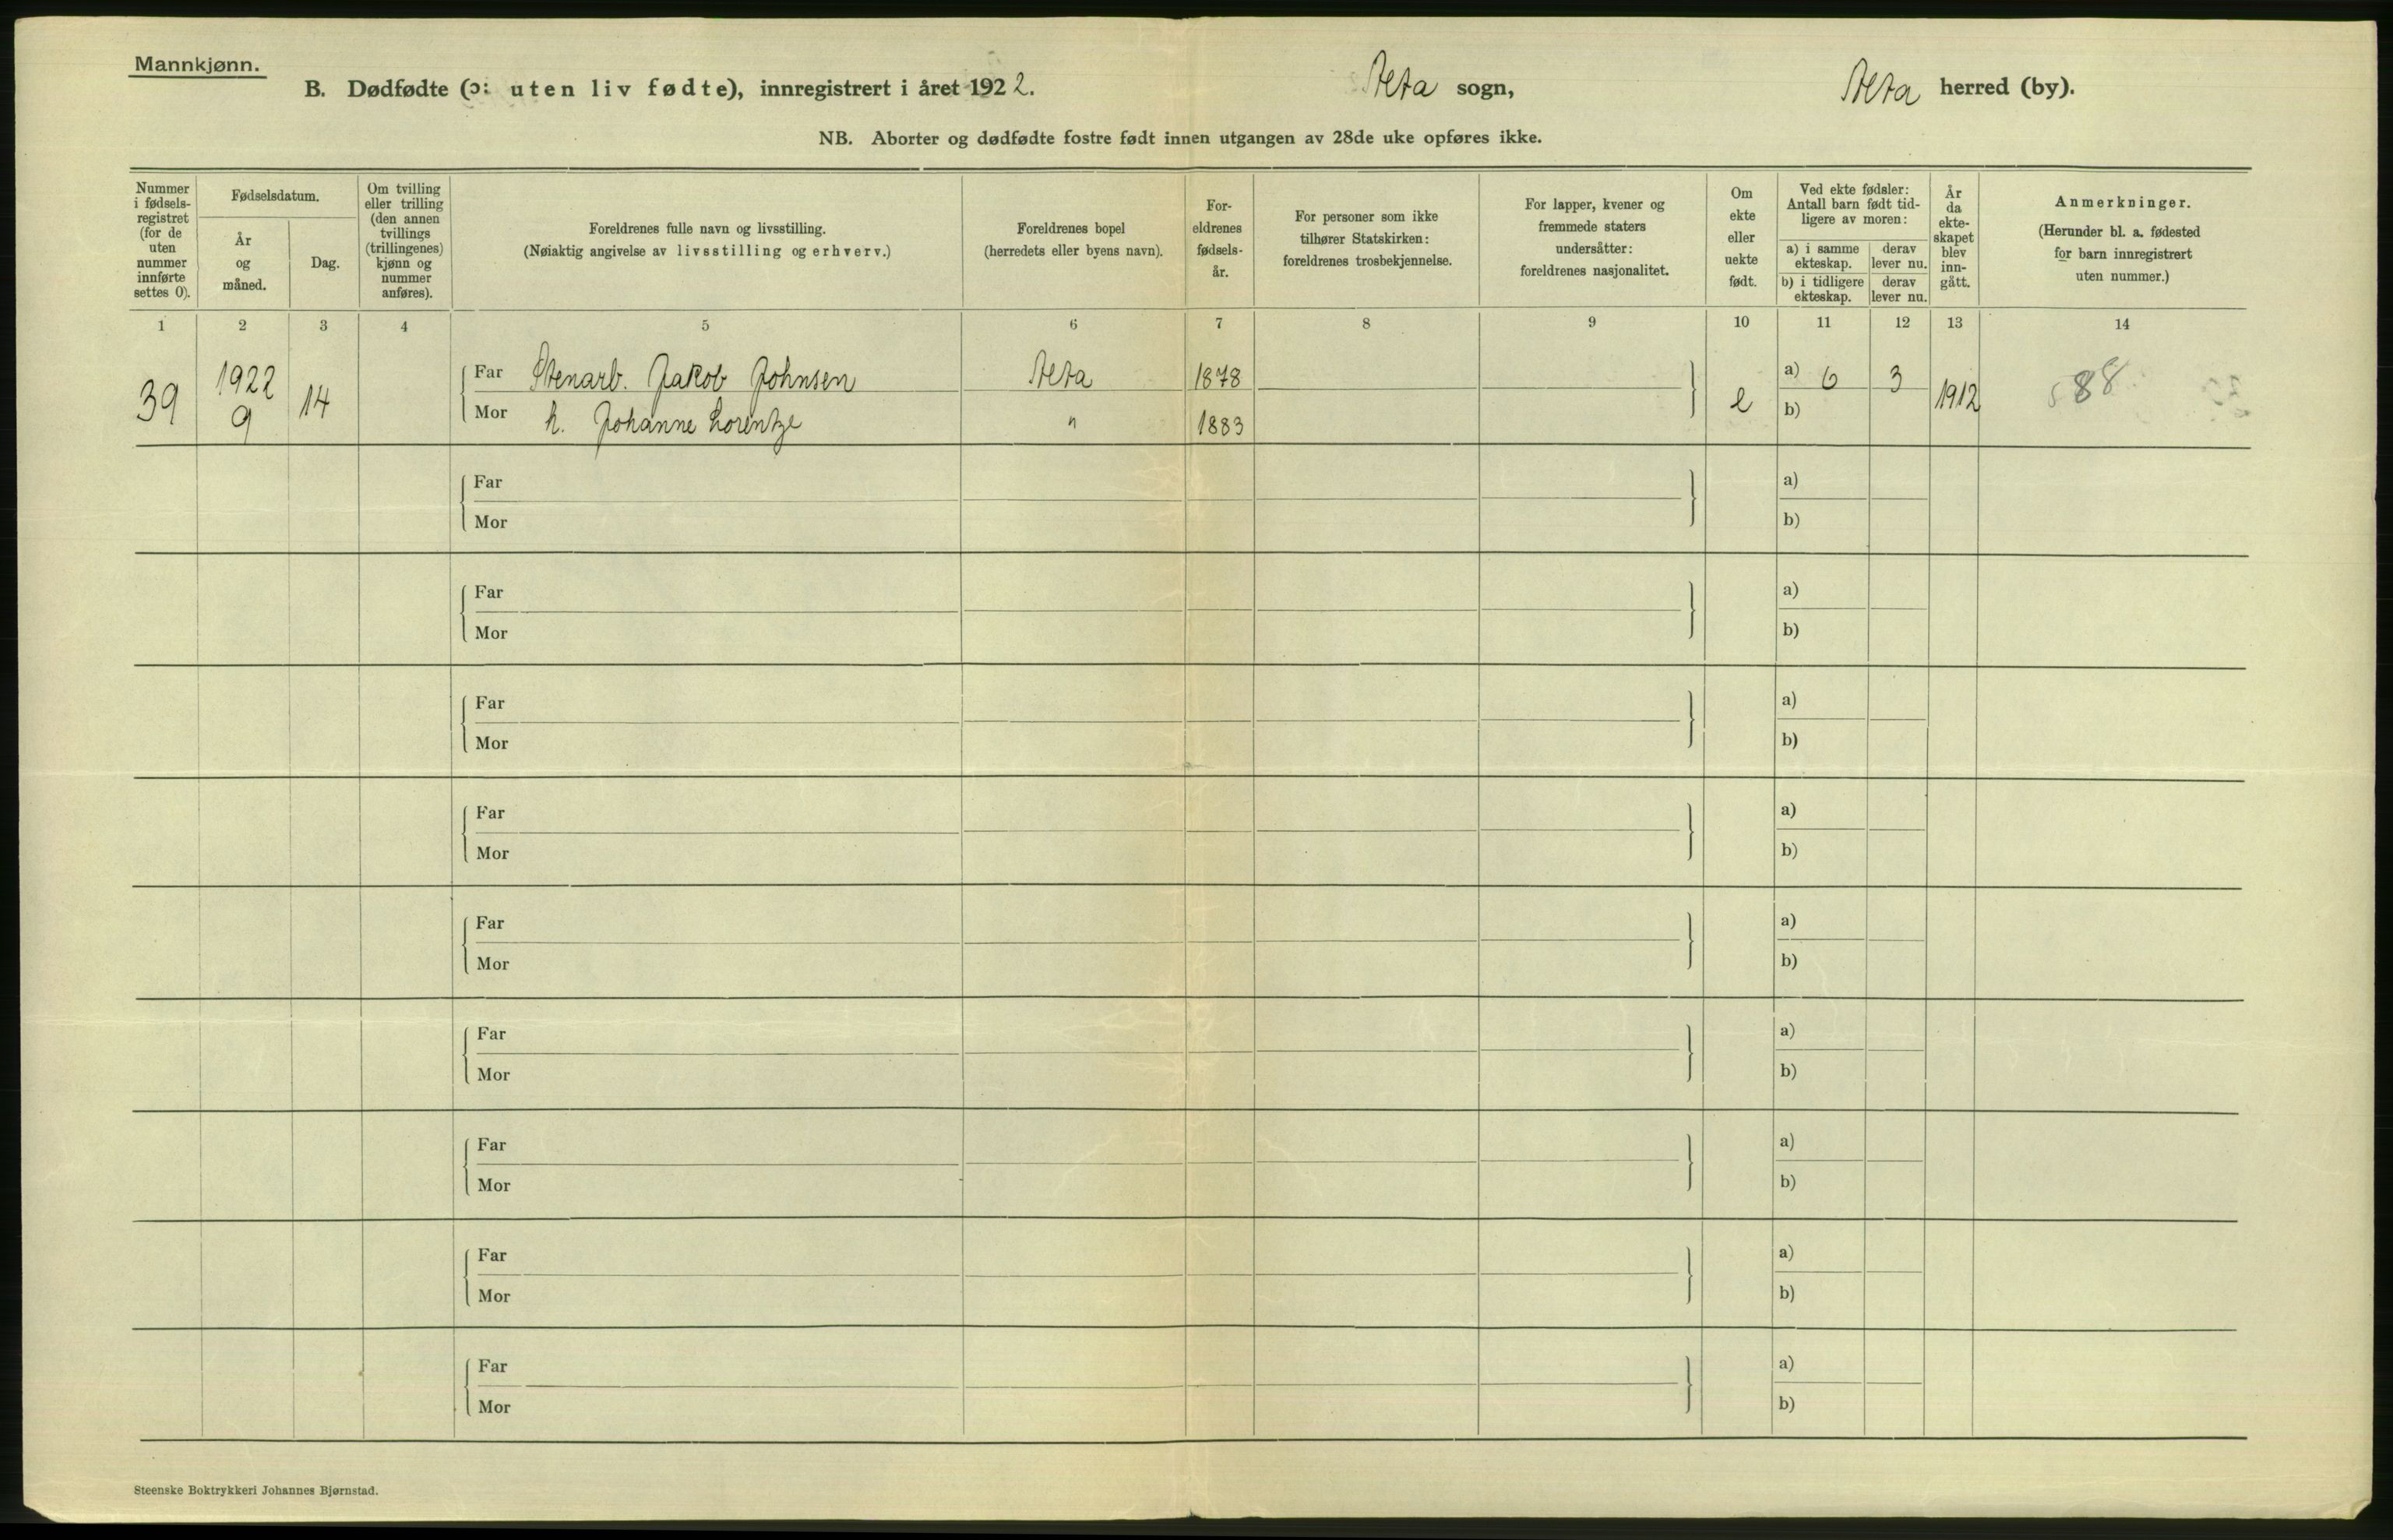 Mannkjønn.
B. Dødfødte (ɔ: uten liv fødte), innregistrert i året 1922. Alta sogn, Alta herred (by).
NB. Aborter og dødfødte fostre født innen utgangen av 28de uke opføres ikke.
Nummer
i fødsels-
registret
(for de
uten
nummer
innførte
settes 0).
Fødselsdatum.
År
og
måned.
Dag.
Om tvilling
eller trilling
(den annen
tvillings
(trillingenes)
kjønn og
nummer
anføres).
Foreldrenes fulle navn og livsstilling.
(Nøiaktig angivelse av livsstilling og erhverv.)
Foreldrenes bopel
(herredets eller byens navn).
For-
eldrenes
fødsels-
år.
For personer som ikke
tilhører Statskirken:
foreldrenes trosbekjennelse.
For lapper, kvener og
fremmede staters
undersåtter:
foreldrenes nasjonalitet.
Om
ekte
eller
uekte
født.
Ved ekte fødsler:
Antall barn født tid-
ligere av moren:
a) i samme
ekteskap.
derav
lever nu.
b) i tidligere
ekteskap.
derav
lever nu.
År
da
ekte-
skapet
blev
inn-
gått.
Anmerkninger.
(Herunder bl. a. fødested
for barn innregistrert
uten nummer.)
1 2 3 4 5 6 7 8 9 10 11 12 13 14
39
1922
9
14
Far Stenarb. Jakob Johnsen Alta 1878
Mor h. Johanne Lorentze " 1883
e
a) 6 3
b)
1912
88
Far
Mor
a)
b)
Far
Mor
a)
b)
Far
Mor
a)
b)
Far
Mor
a)
b)
Far
Mor
a)
b)
Far
Mor
a)
b)
Far
Mor
a)
b)
Far
Mor
a)
b)
Far
Mor
a)
b)
Steenske Boktrykkeri Johannes Bjørnstad.